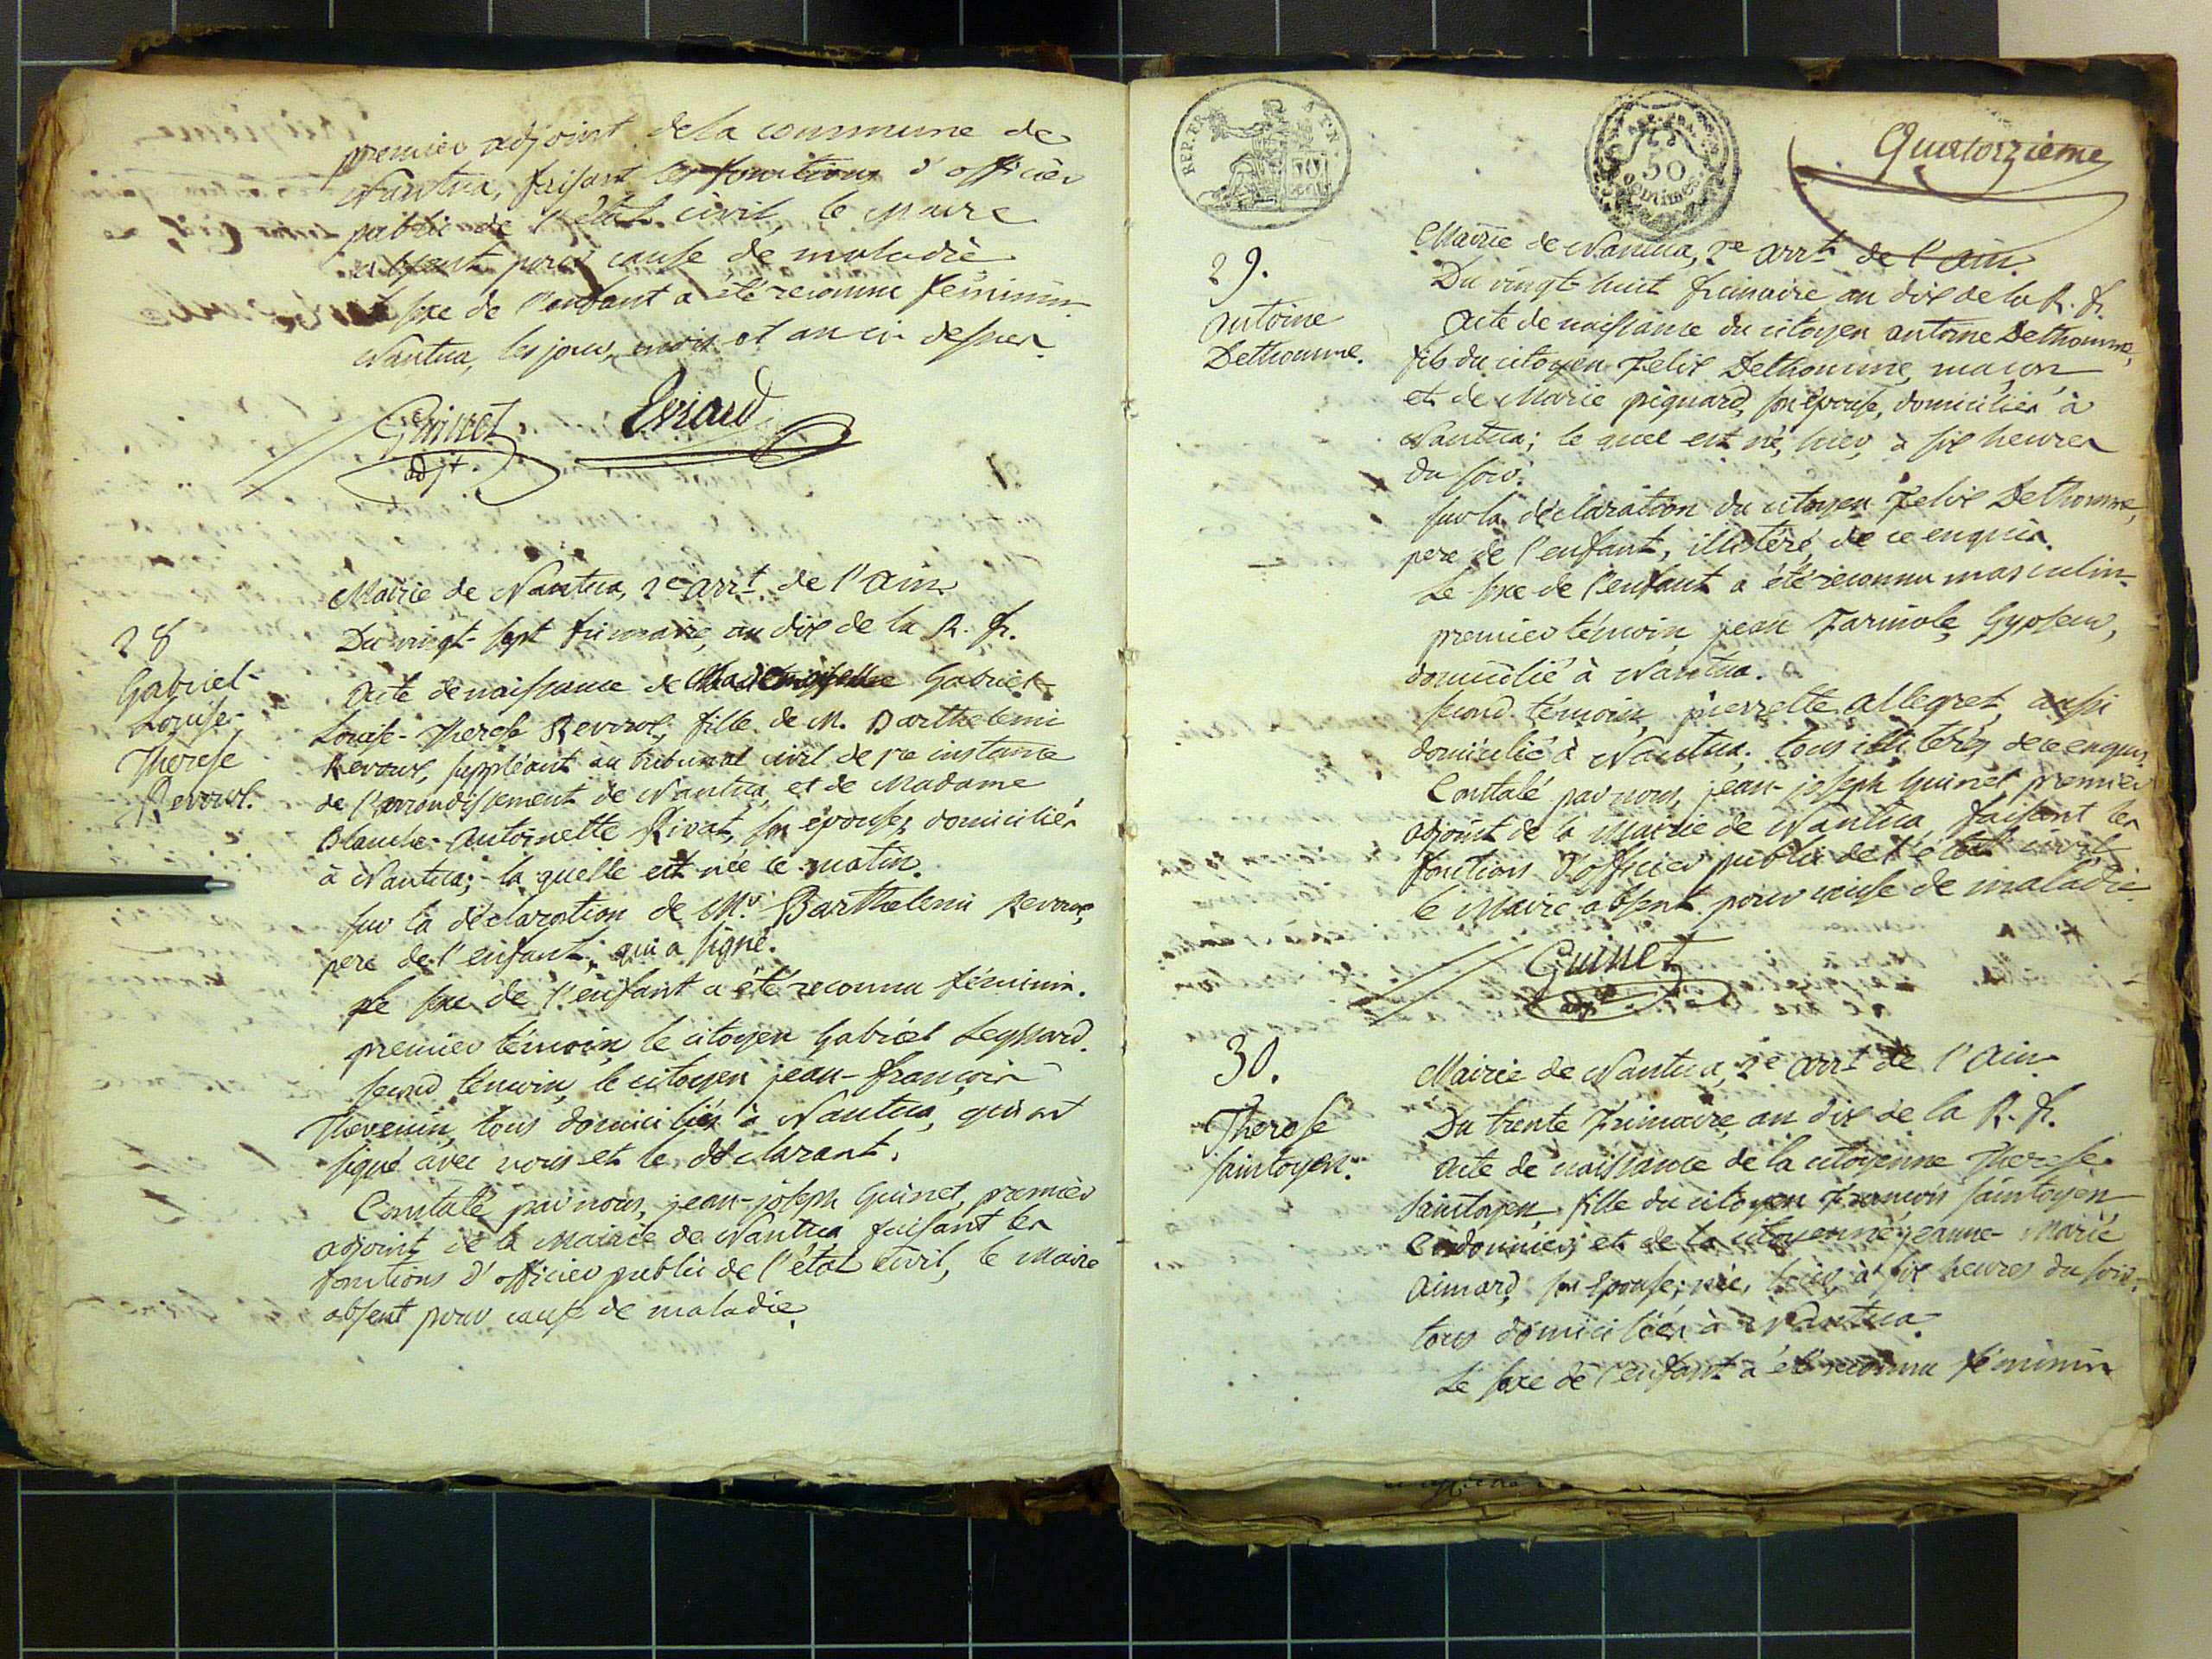 premier adjoint de la commune de
Nantua, faisant les fonctions d'officier
public de l'état civil, le maire
absent pour cause de maladie
sexe de l'enfant a été reconnu féminin
Nantua, les jour, mois et an ci-dessus.
Guinet
adjt.
28
Gabriel-
Louise-
Therese
Revoux.
Mairie de Nantua, 2e arrt. de l'ain
Du vingt-sept frimaire, an dix de la R. fr.
acte de naissance de Mademoiselle Gabriel-
Louise-Therese Revoux, fille de M. Barthelemi
Revoux, suppléant au tribunal civil de 1re instance
de l'arrondissement de Nantua, et de Madame
Blanche-Antoinette Rivat, son épouse, domiciliés
à Nantua; la quelle est née ce matin.
sur la déclaration de Mr. Barthelemi Revoux,
pere de l'enfant; qui a signé.
Le sexe de l'enfant a été reconnu féminin.
premier témoin, le citoyen Gabriel Leyssard.
second témoin, le citoyen jean-françois
Thevenin, tous domiciliés à Nantua, qui ont
signé avec nous et le déclarant.
Constaté par nous, jean-joseph Guinet, premier
adjoint de la Mairie de Nantua faisant les
fonctions d'officier public de l'état civil, le Maire
absent pour cause de maladie.
REP. FRA
50
centimes
Quatorzième
29.
antoine
Dethomme.
Mairie de Nantua, 2e arrt. de l'ain.
Du vingt-huit frimaire an dix de la R. fr.
acte de naissance du citoyen antoine Dethomme,
fils du citoyen Felix Dethomme, maçon
et de Marie piquard, son épouse, domiciliés à
Nantua; le quel est né, hier, à six heures
du soir.
sur la déclaration du citoyen Felix Dethomme,
pere de l'enfant, illitéré, de ce enquis.
Le sexe de l'enfant a été reconnu masculin.
premier témoin jean Farinole, Gypseur,
domicilié à Nantua.
second témoin, pierrette allegret, aussi
domicilié à Nantua. tous illitérés, de ce enquis.
Constaté par nous, jean-joseph Guinet, premier
adjoint de la Mairie de Nantua faisant les
fonctions d'officier public de l'état civil
le Maire absent pour cause de maladie.
Guinet
adjt
30.
Therese
saintoyen.
Mairie de Nantua, 2e arrt de l'ain.
Du trente frimaire, an dix de la R. fr.
acte de naissance de la citoyenne Therese
saintoyen, fille du citoyen François saintoyen,
Cordonnier, et de la citoyenne jeanne-Marie
aimard, son épouse; née, hier, à six heures du soir,
tous domiciliés à Nantua.
Le sexe de l'enfant a été reconnu féminin